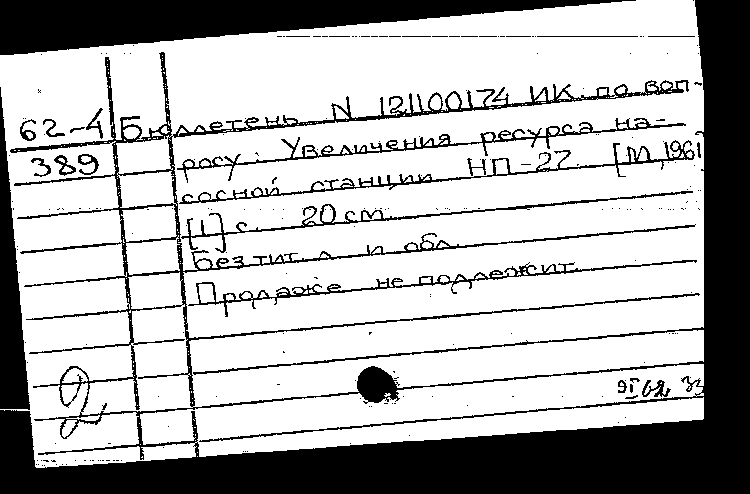 62-4 Бюллетень N 121100174 ИК по воп-
389 росу: Увеличения ресурса на-
сосной станции НП-27. [М, 1961]
[1] с. 20 см.
Без тит. л и обл.
Продаже не подлежит.
2